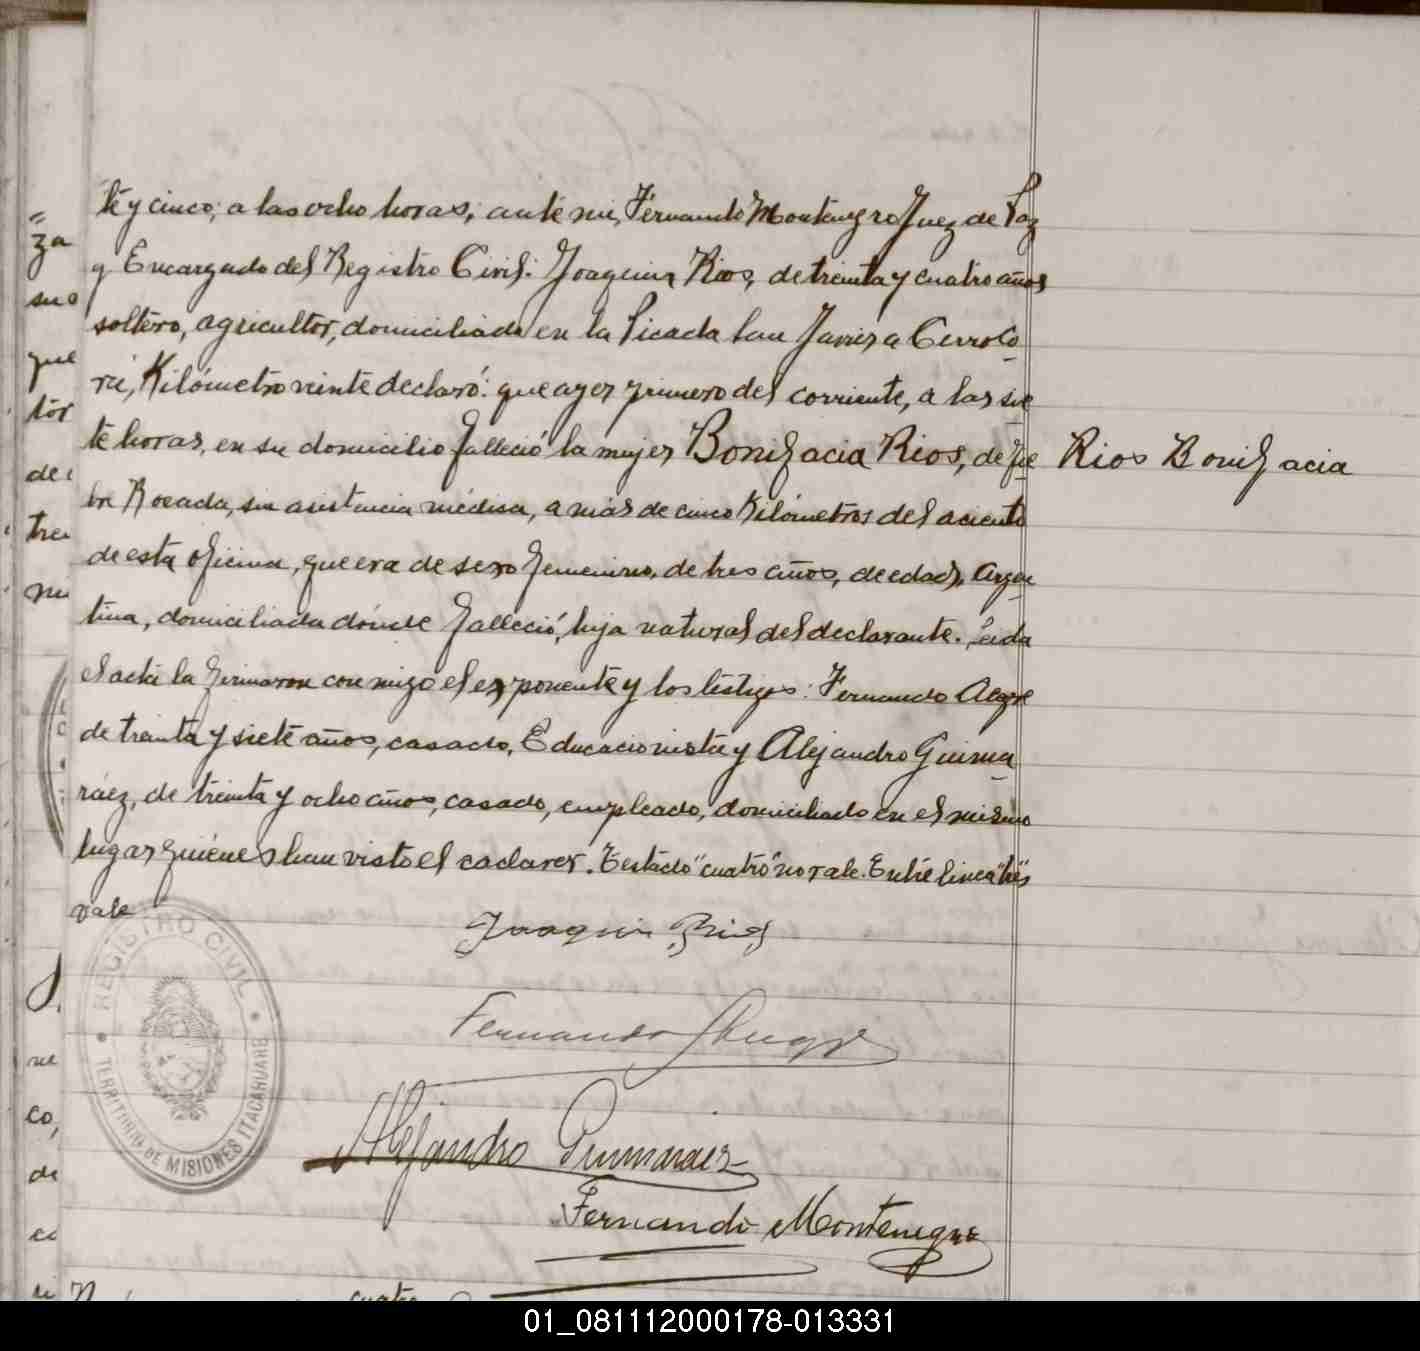 te y cinco, a las ocho horas, ante mi, Fernando Montenegro Juez de Paz
y Encargado del Registro Civil: Joaquin Rios, de treinta y cuatro años
soltero, agricultor, domiciliado en la Picada San Javier a Cerro Co
rá, Kilómetro veinte declaró: que ayer primero del corriente, a las sie
te horas, en su domicilio falleció la mujer Bonifacia Rios, de fie
Rios Bonifacia
bre sin asistencia médica, a más de cinco Kilómetros del aciento
de esta oficina, que era de sexo femenino, de tres años, de edad, Argen
tina, domiciliada dónde falleció, hija natural del declarante. Leida
el acta la firmaron conmigo el exponente y los testigos: Fernando
de treinta y siete años, casado, Educacionista y Alejandro Guima
ráez, de treinta y ocho años, casado, empleado, domiciliado en el mismo
lugar quiénes han visto el cadaver. Testado "cuatro" no vale. Entre linea "tres"
vale
Joaquin Rios
Fernando
Alejandro Guimaraez
Fernando Montenegro
REGISTRO CIVIL
TERRITORIO DE MISIONES ITACARUARE
za
su
que
tor
de
tre
mi
ne
co,
de
cuatro
01_081112000178-013331